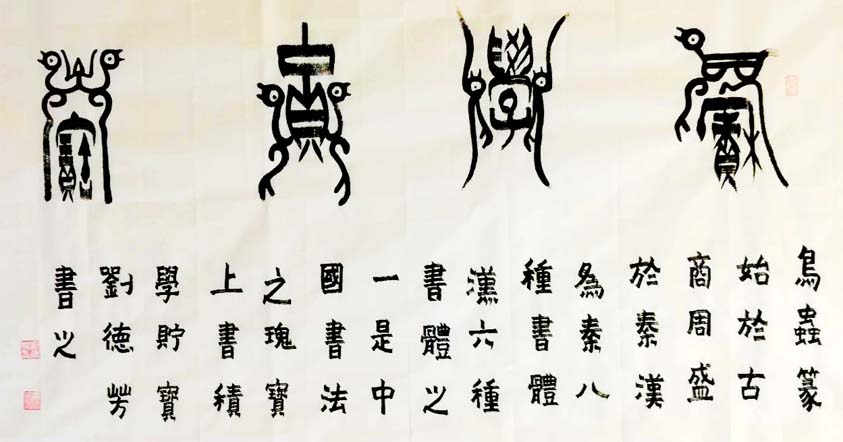 積學貯寶
鳥蟲篆
始於古
商周盛
於秦漢
為秦八
種書體
漢六種
書體之
一是中
國書法
之瑰寶
上書積
學貯寶
劉德芳
書之